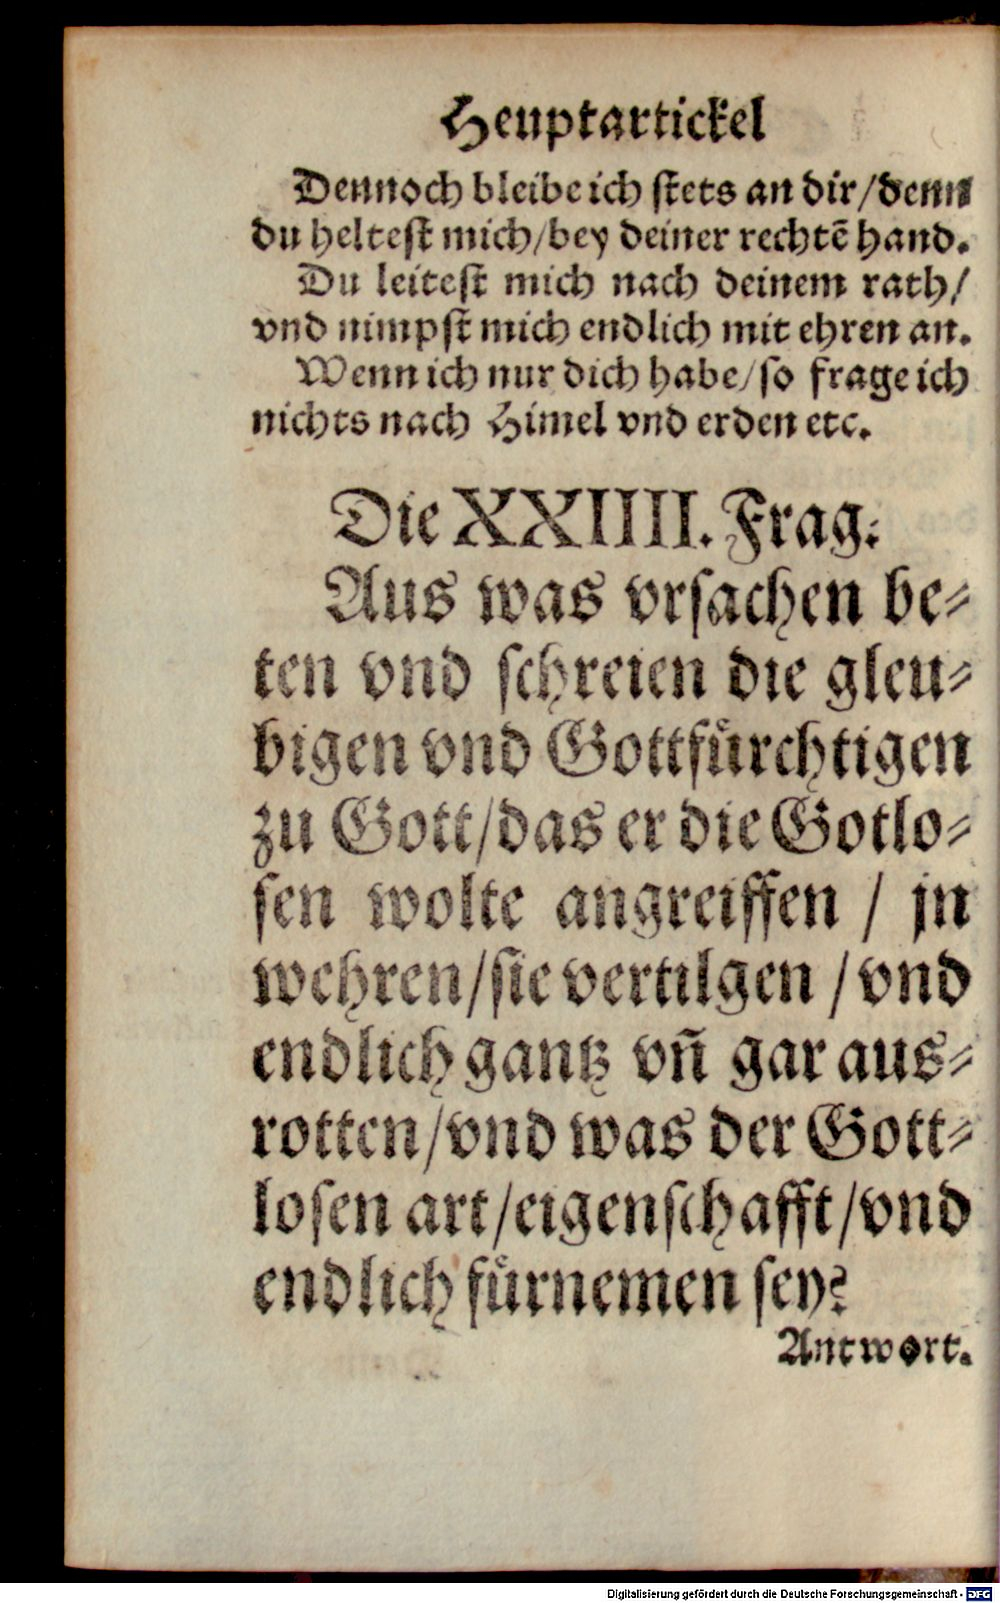 Heuptartickel
Dennoch bleibe ich stets an dir/denn
du heltest mich/bey deiner rechtē hand.
Du leitest mich nach deinem rath/
vnd nimpst mich endlich mit ehren an.
Wenn ich nur dich habe/so frage ich
nichts nach Himel vnd erden etc.
Die XXIIII. Frag:
Aus was vrsachen be⸗
ten vnd schreien die gleu⸗
bigen vnd Gottfuͤrchtigen
zu Gott/das er die Gotlo⸗
sen wolte angreiffen / jn
wehren/sie vertilgen /vnd
endlich gantz vn̄ gar aus⸗
rotten/vnd was der Gott⸗
losen art/eigenschafft/vnd
endlich fuͤrnemen sey?
Antwort.
Digitalisierung gefördert durch die Deutsche Forschungsgemeinschaft - DFG